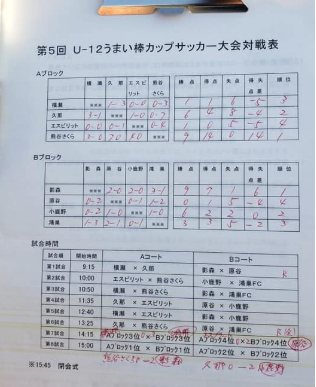 第5回 U-12うまい棒カップサッカー大会対戦表
Aブロック
横瀬 久那 エスピリット 熊谷さくら 勝点 得点 失点 得失点差 順位
横瀬 *** 1-3 0-0 0-3 1 1 6 -5 3
久那 3-1 *** 1-0 0-7 6 4 8 -4 2
エスピリット 0-0 0-1 *** 0-4 1 0 5 -5 4
熊谷さくら 3-0 7-0 4-0 *** 9 14 0 14 1
Bブロック
影森 原谷 小鹿野 鴻巣 勝点 得点 失点 得失点差 順位
影森 *** 2-0 2-0 3-1 9 7 1 6 1
原谷 0-2 *** 0-1 1-2 0 1 5 -4 4
小鹿野 0-2 1-0 *** 1-0 6 2 2 0 2
鴻巣 1-3 2-1 0-1 *** 3 3 5 -2 3
試合時間
試合順 開始時間 Aコート Bコート
第1試合 9:15 横瀬 × 久那 影森 × 原谷
第2試合 10:00 エスピリット × 熊谷さくら 小鹿野 × 鴻巣FC
第3試合 10:50 横瀬 × エスピリット 影森 × 小鹿野
第4試合 11:35 久那 × 熊谷さくら 原谷 × 鴻巣FC
第5試合 12:40 横瀬 × 熊谷さくら 影森 × 鴻巣FC
第6試合 13:25 久那 × エスピリット 原谷 × 小鹿野
第7試合 14:15 Aブロック3位 Bブロック3位 Aブロック4位 Bブロック4位
第8試合 15:00 Aブロック1位 Bブロック1位 Aブロック2位 Bブロック2位
※15:45 閉会式